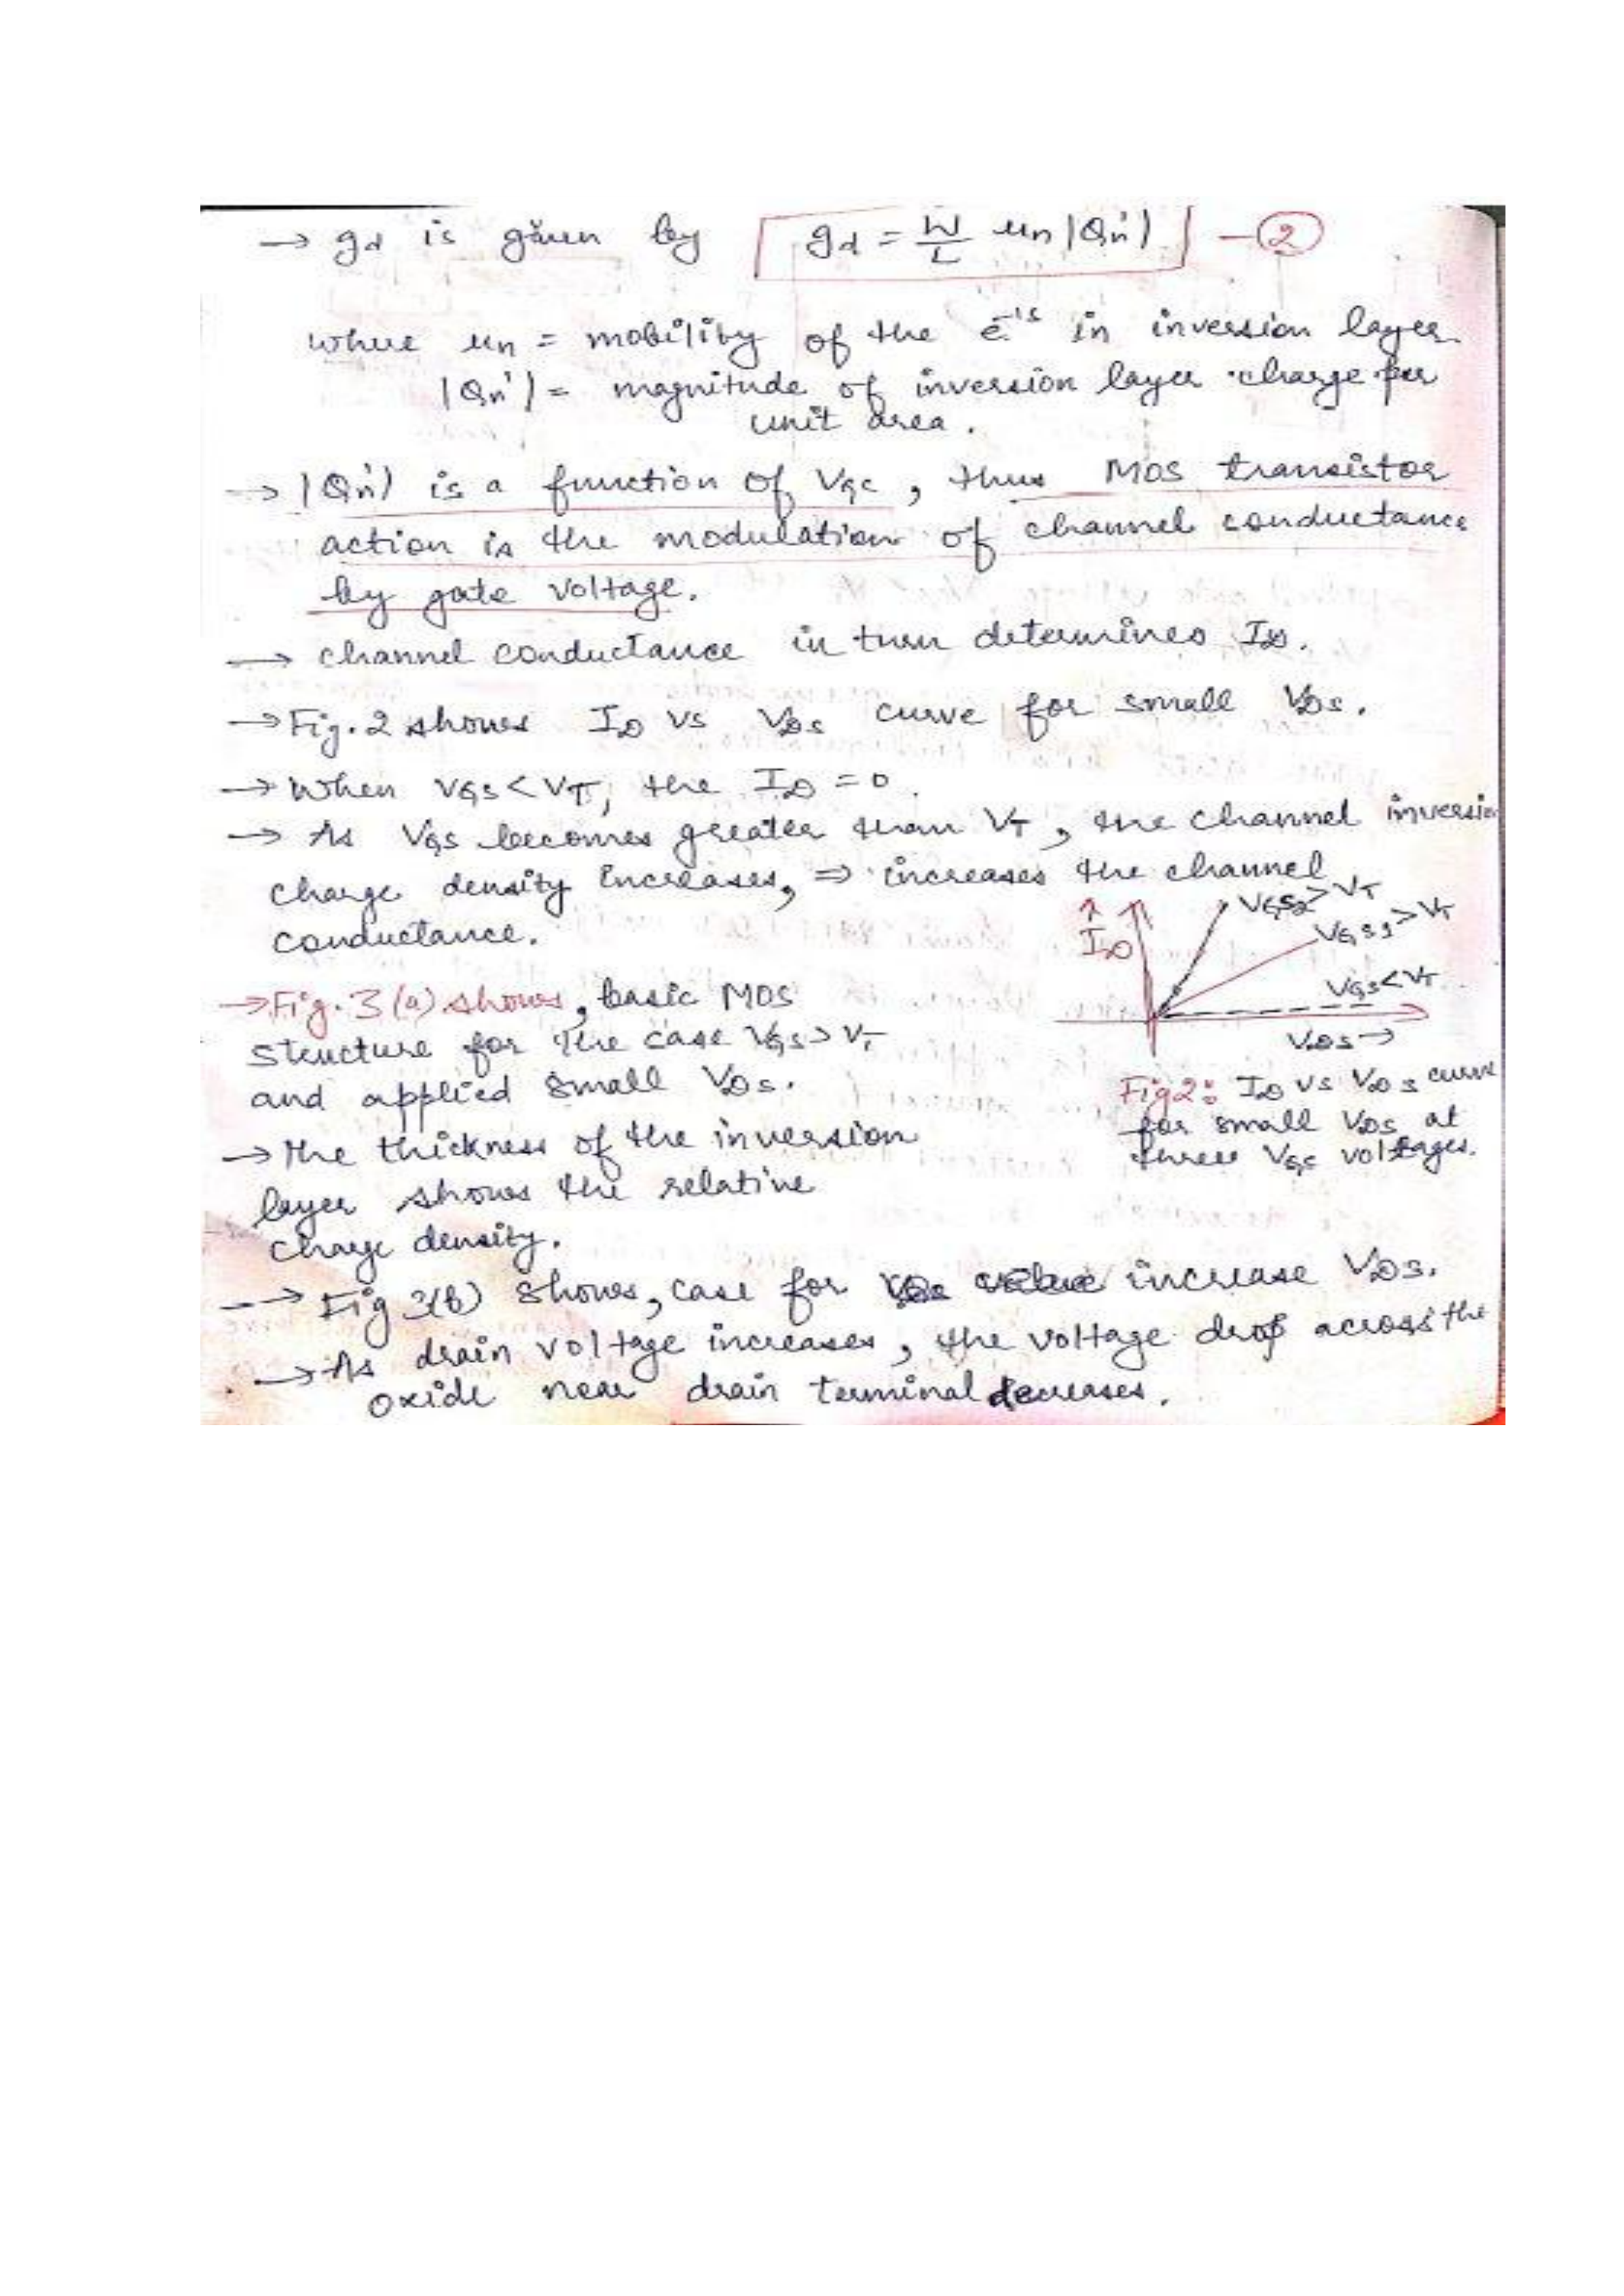 → gd is given by gd = W/L μn |Qn'| -②
where μn = mobility of the e⁻'s in inversion layer.
|Qn'| = magnitude of inversion layer charge per
unit area.
→ |Qn'| is a function of VGS, thus MOS transistor
action is the modulation of channel conductance
by gate voltage.
→ channel conductance in turn determines ID.
→ Fig. 2 shows ID vs VDS curve for small VDS.
→ When VGS < VT, the ID = 0.
→ As VGS becomes greater than VT, the channel inversion
charge density increases, ⇒ increases the channel
conductance.
↑
ID
VGS2 > VT
VGS1 > VT
VGS < VT
VDS →
Fig2: ID vs VDS curve
for small VDS at
three VGS voltages.
→ Fig. 3(a) shows, basic MOS
structure for the case VGS > VT
and applied small VDS.
→ The thickness of the inversion
layer shows the relative
charge density.
→ Fig 3(b) shows, case for increase VDS.
→ As drain voltage increases, the voltage drop across the
oxide near drain terminal decreases.